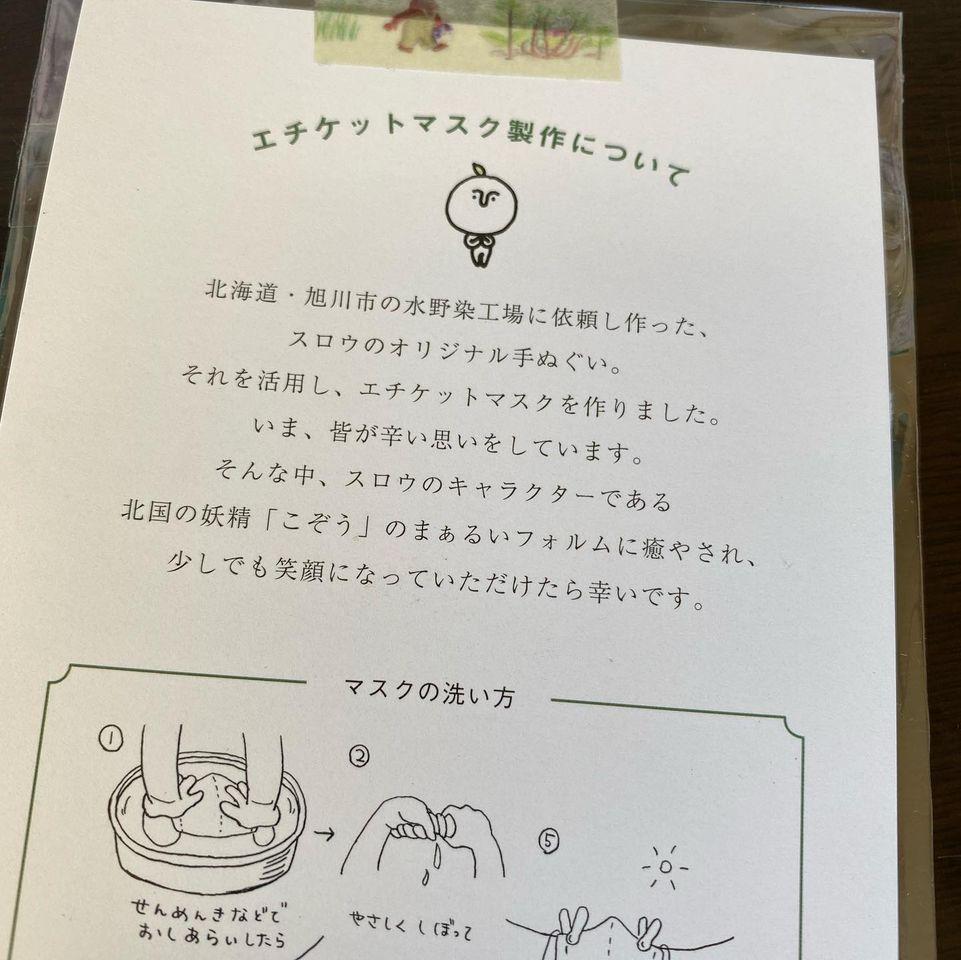 エチケットマスク製作について
北海道・旭川市の水野染工場に依頼し作った、
スロウのオリジナル手ぬぐい。
それを活用し、エチケットマスクを作りました。
いま、皆が辛い思いをしています。
そんな中、スロウのキャラクターである
北国の妖精「こぞう」のまぁるいフォルムに癒やされ、
少しでも笑顔になっていただけたら幸いです。
マスクの洗い方
①
せんめんきなどで
おしあらいしたら
②
やさしくしぼって
⑤